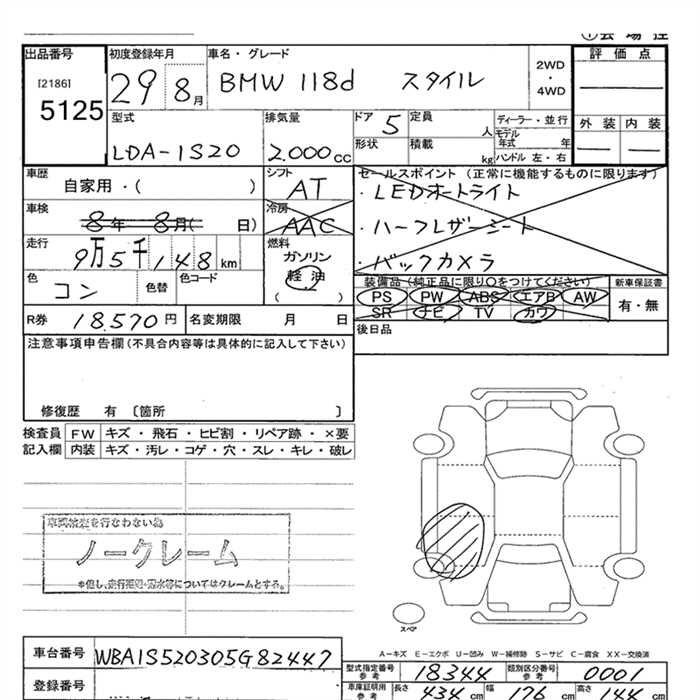 ①会場控
出品番号 初度登録年月 車名・グレード 評価点
[2186]
5125
29 8月 BMW 118d スタイル
2WD
・
4WD
外装 内装
型式 排気量 ドア 5 定員 人 ディーラー・並行
モデル年式 年
LDA-1S20 2.000cc 形状 積載 kg ハンドル 左・右
車歴 シフト セールスポイント (正常に機能するものに限ります)
自家用・( ) AT ・LEDオートライト
車検 8年 8月( 日) 冷房 AAC ・ハーフレザーシート
走行 9万5千148km 燃料 ガソリン
・バックカメラ
色 コン 色替 色コード 軽油
( )
装備品(純正品に限り○をつけてください) 新車保証書
PS PW ABS エアB AW 有・無
SR ナビ TV カワ
R券 18.570円 名変期限 月 日 後日品
注意事項申告欄(不具合内容等は具体的に記入して下さい)
修復歴 有 〔箇所 〕
検査員 FW キズ・飛石・ヒビ割・リペア跡・×要
記入欄 内装 キズ・汚レ・コゲ・穴・スレ・キレ・破レ
車両検査を行なわない為
ノークレーム
※但し、走行距離・冠水等についてはクレームとする。
スペア
A－キズ E－エクボ U－凹み W－補修跡 S－サビ C－腐食 XX－交換済
車台番号 WBA1S520305G82447
型式指定番号 参考 18344 類別区分番号 参考 0001
登録番号
車庫証明用 参考 長さ 434cm 幅 176cm 高さ 144cm